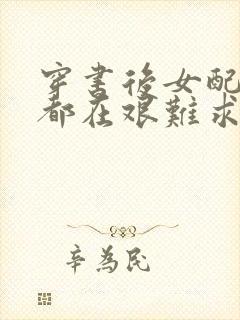 穿書後女配
都在艱難求
辛為民